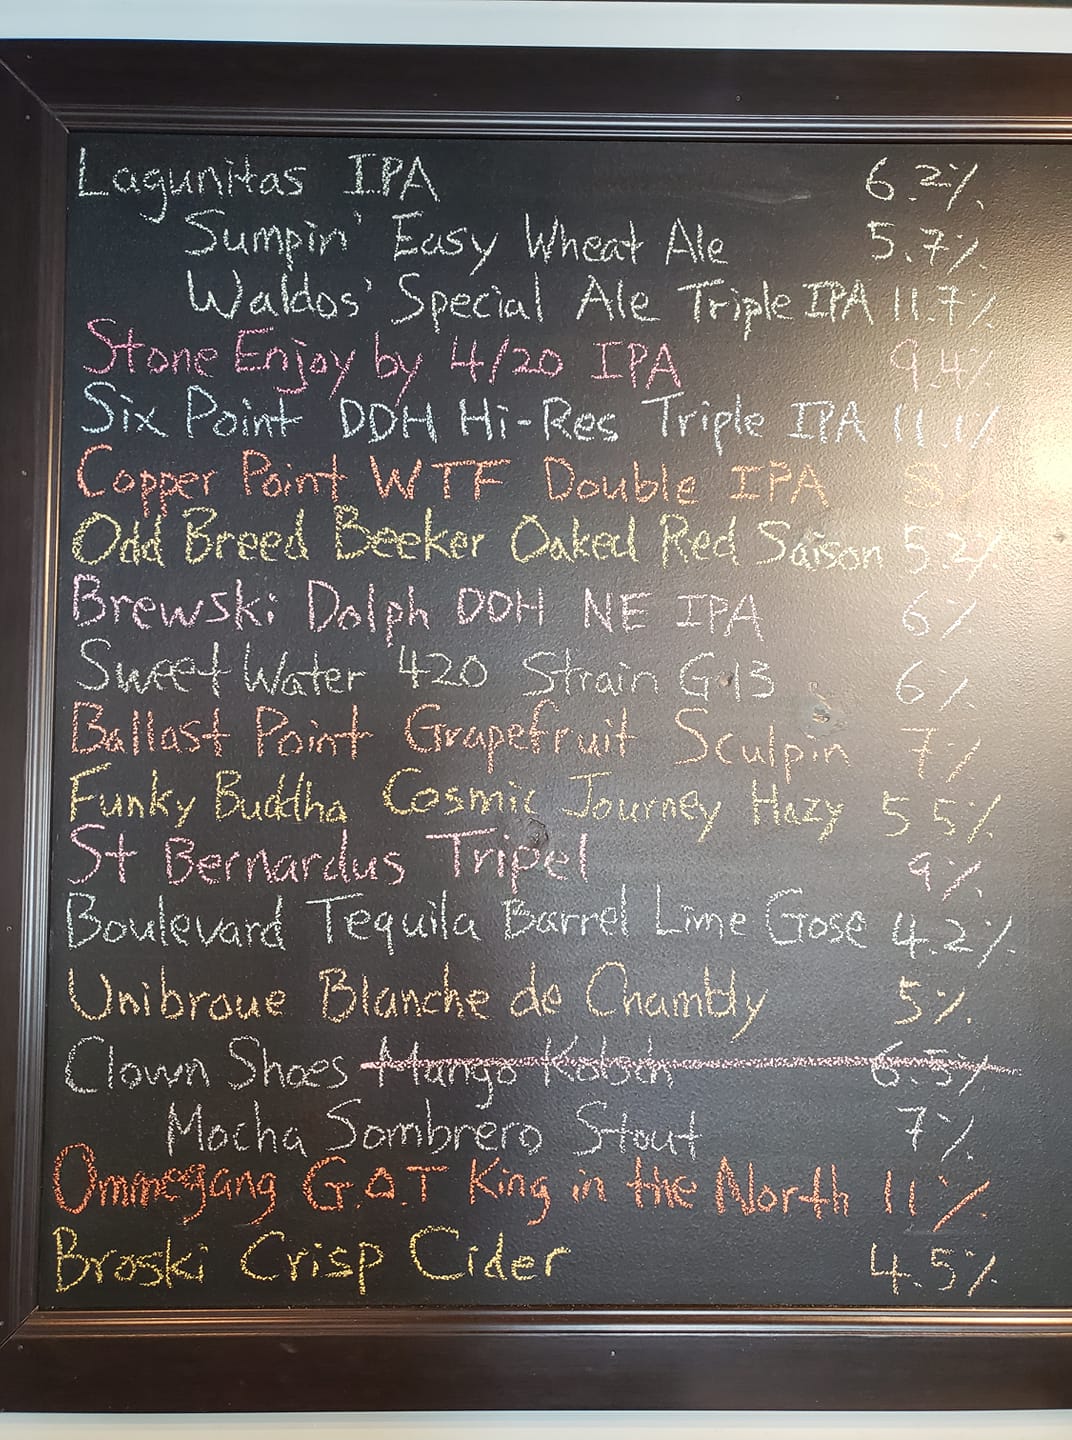 Lagunitas IPA 6.2%
Sumpin' Easy Wheat Ale 5.7%
Waldos' Special Ale Triple IPA 11.7%
Stone Enjoy by 4/20 IPA 9.4%
Six Point DDH Hi-Res Triple IPA 11.1%
Copper Point WTF Double IPA
Odd Breed Beeker Oaked Red Saison 5.2%
Brewski Dolph DDH NE IPA 6%
Sweet Water 420 Strain G-13 6%
Ballast Point Grapefruit Sculpin 7%
Funky Buddha Cosmic Journey Hazy 5.5%
St Bernardus Tripel 9%
Boulevard Tequila Barrel Lime Gose 4.2%
Unibroue Blanche de Chambly 5%
Clown Shoes Mango Kolsch 6.5%
Mocha Sombrero Stout 7%
Ommegang G.O.T King in the North 11%
Broski Crisp Cider 4.5%